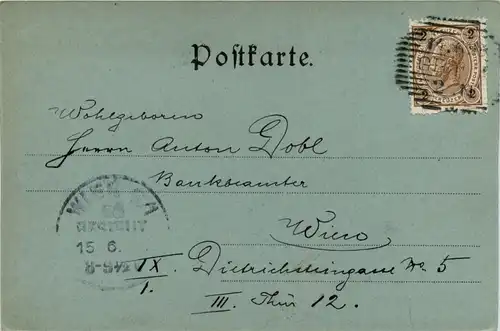 Postkarte.
2 2
2 2
Wohlgeboren
Herrn Anton Dobl
Bankbeamter
Wien
IX. Dietrichsteingasse No 5
I. III. Thür 12.
WIEN
BESTELLT
15 6.